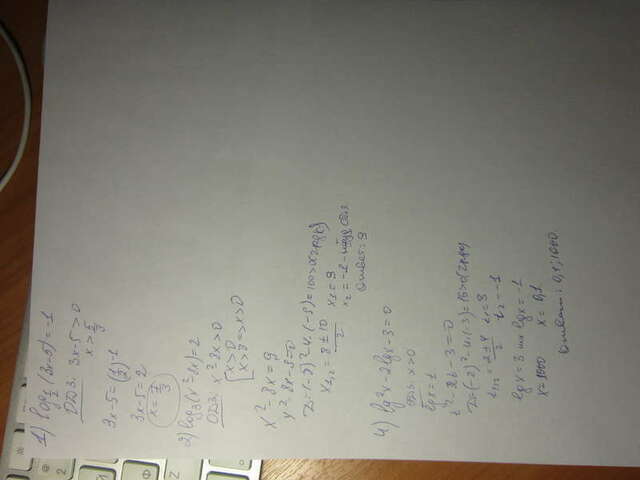 1) log½(3x-5)=-1
ОДЗ: 3x-5>0
x>5/3
3x-5=(½)⁻¹
3x-5=2
x=7/3
2) log₃(x²-8x)=2
ОДЗ: x²-8x>0
x>0
x>8 => x>0
x²-8x=9
x²-8x-9=0
D=(-8)²-4·(-9)=100>0(2корн)
x₁,₂=8±10/2
x₁=9
x₂=-1-
Ответ: 9
4) lg²x-2lgx-3=0
ОДЗ: x>0
lgx=t
t²-2t-3=0
D=(-2)²-4·(-3)=16>0(2корн)
t₁,₂=2±4/2 t₁=3 t₂=-1
lgx=3 или lgx=-1
x=1000 x=0,1
Ответ: 0,1; 1000